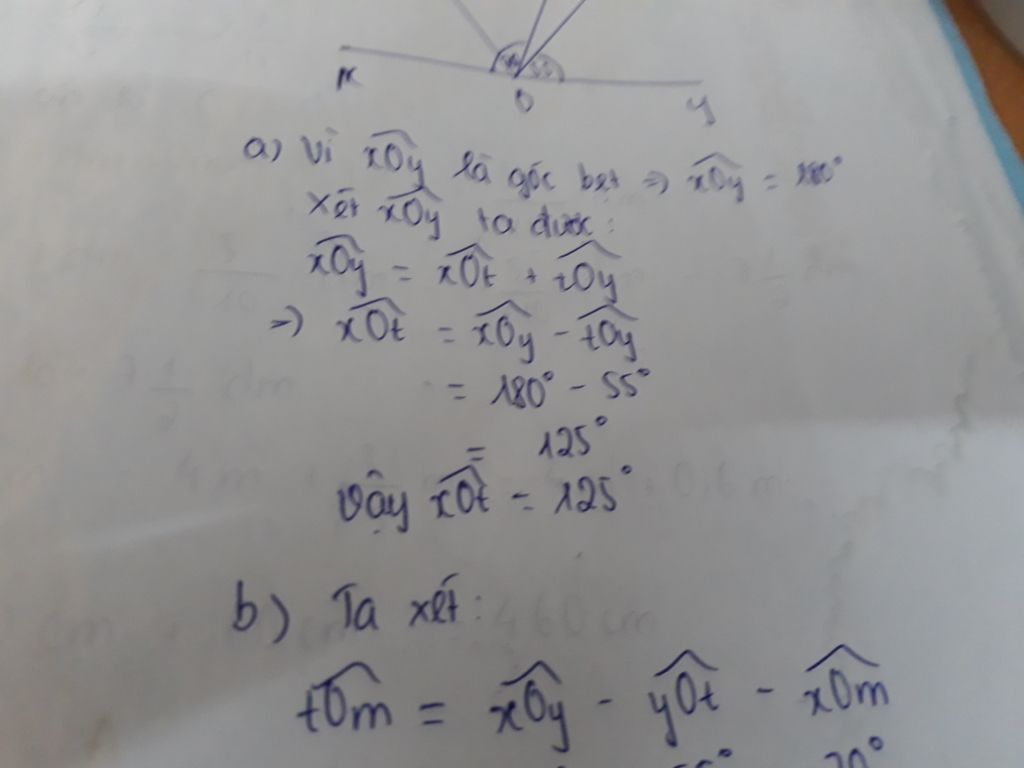 x
O
y
a) Vì xOy là góc bẹt => xOy = 180°
Xét xOy ta được:
xOy = xOt + tOy
=> xOt = xOy - tOy
= 180° - 55°
= 125°
Vậy xOt = 125°
b) Ta xét:
tOm = xOy - yOt - xOm